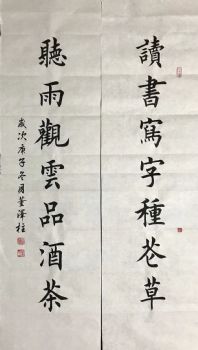 讀書寫字種花草
聽雨觀雲品酒茶
歲次庚子冬月董澤柱